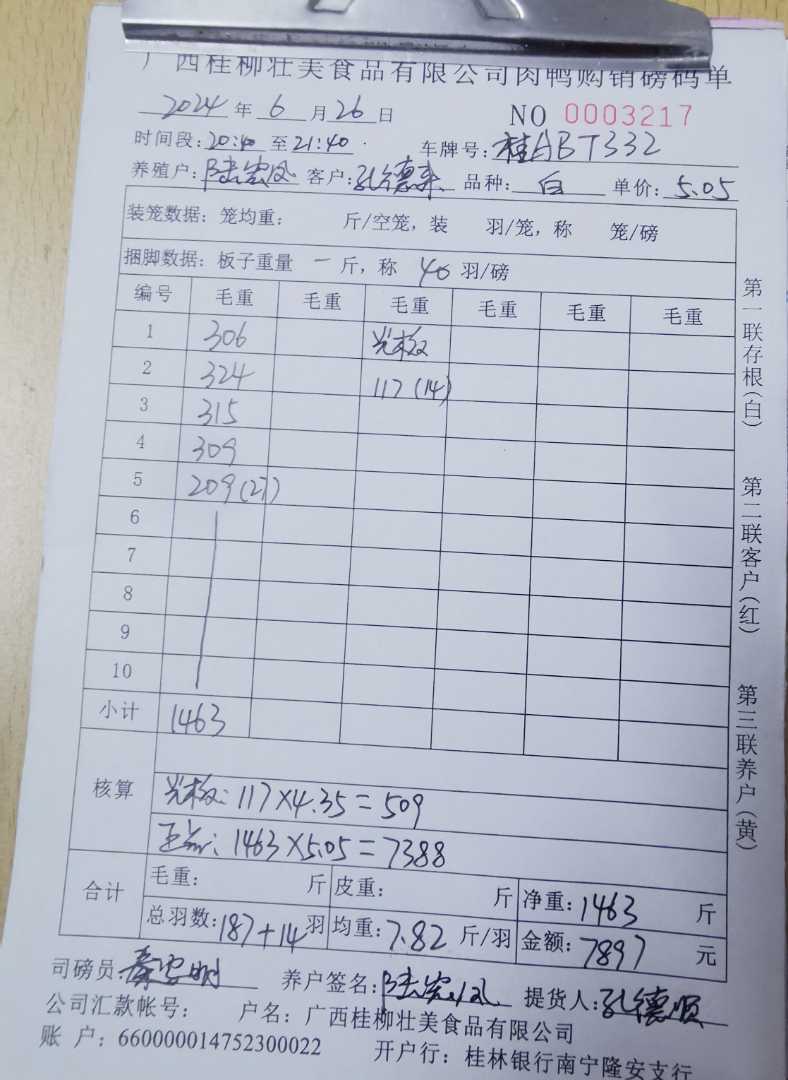 广西桂柳壮美食品有限公司肉鸭购销磅码单
2024 年 6 月 26 日 NO 0003217
时间段: 20:40 至 21:40. 车牌号: 桂ABT332
养殖户: 陆宏凤 客户: 孔德来 品种: 白 单价: 5.05
装笼数据: 笼均重: 斤/空笼, 装 羽/笼, 称 笼/磅
捆脚数据: 板子重量 一 斤, 称 40 羽/磅
编号 毛重 毛重 毛重 毛重 毛重 毛重
1 306 光板
2 324 117 (14)
3 315
4 309
5 209 (27)
6
7
8
9
10
小计 1463
核算
光板: 117×4.35=509
正品: 1463×5.05=7388
合计 毛重: 斤 皮重: 斤 净重: 1463 斤
总羽数: 187+14 羽 均重: 7.82 斤/羽 金额: 7897 元
司磅员: 养户签名: 陆宏凤 提货人: 孔德顺
公司汇款帐号: 户名: 广西桂柳壮美食品有限公司
账 户: 660000014752300022 开户行: 桂林银行南宁隆安支行
第一联存根(白)
第二联客户(红)
第三联养户(黄)